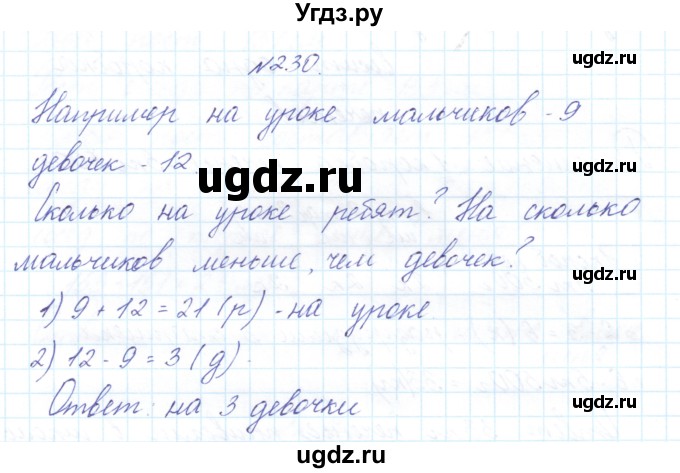 Угдз.ру
ugdz.ru
№230.
ugdz.ru
Например на уроке мальчиков - 9
девочек - 12.
ugdz.ru
ugdz.ru
Сколько на уроке ребят? На сколько
мальчиков меньше, чем девочек?
ugdz.ru
1) 9 + 12 = 21 (р) - на уроке
ugdz.ru
2) 12 - 9 = 3 (д).
Ответ: на 3 девочки
ugdz.ru
ugdz.ru